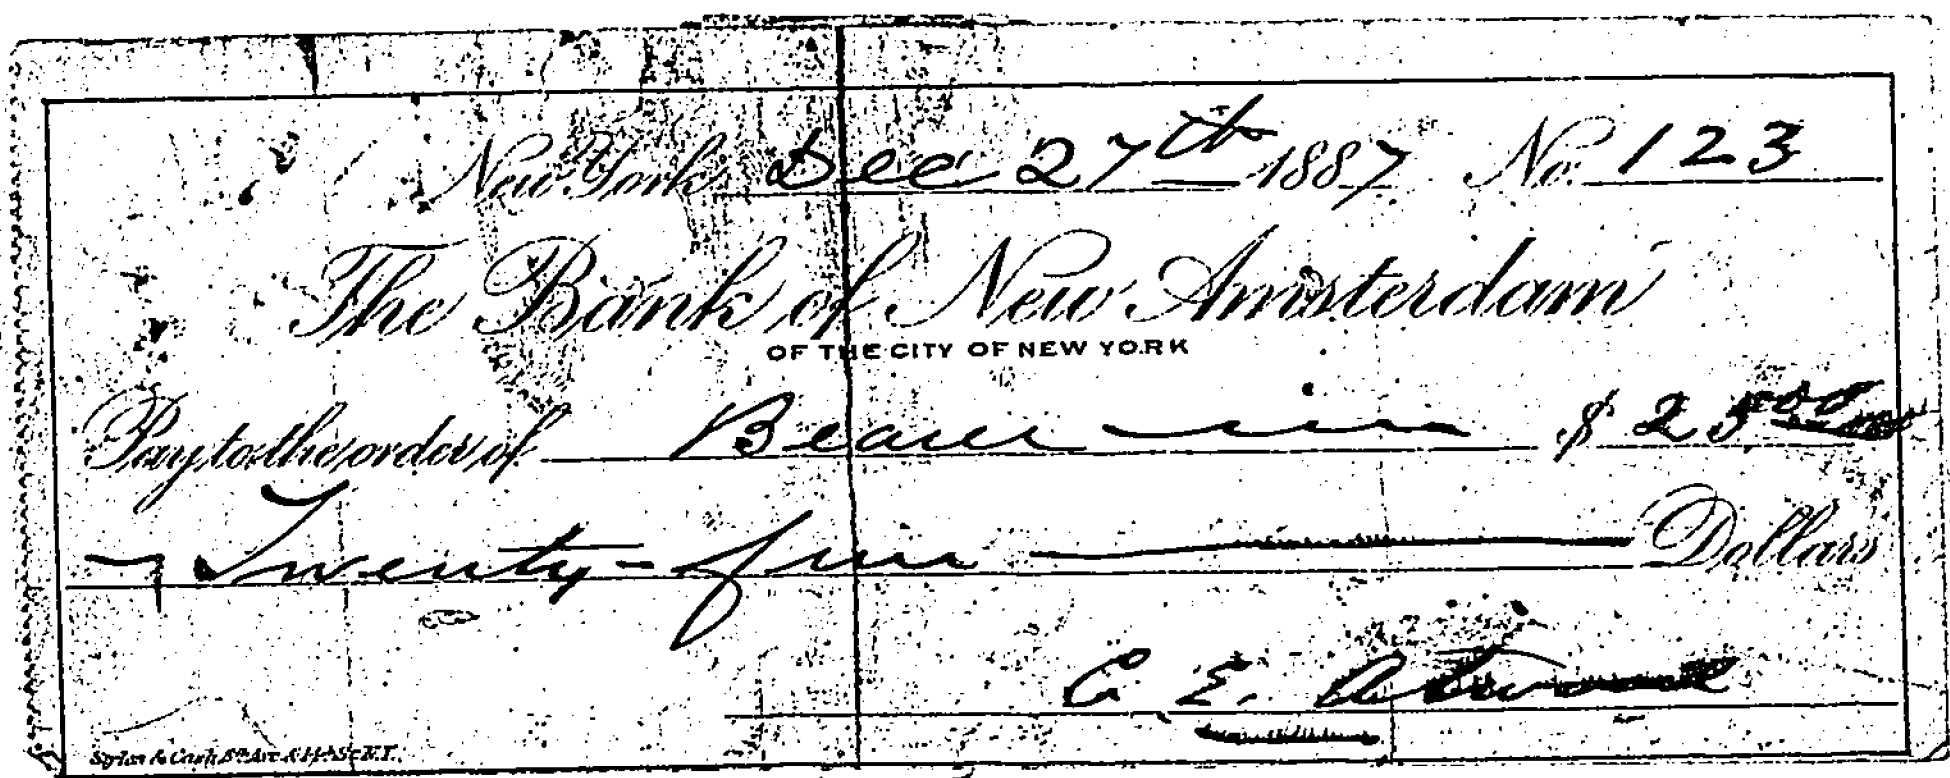 New York Dec 27th 1887 No. 123
The Bank of New Amsterdam
OF THE CITY OF NEW YORK
Pay to the order of Bearer $ 25 00
Twenty-five Dollars
C. E. Atwood